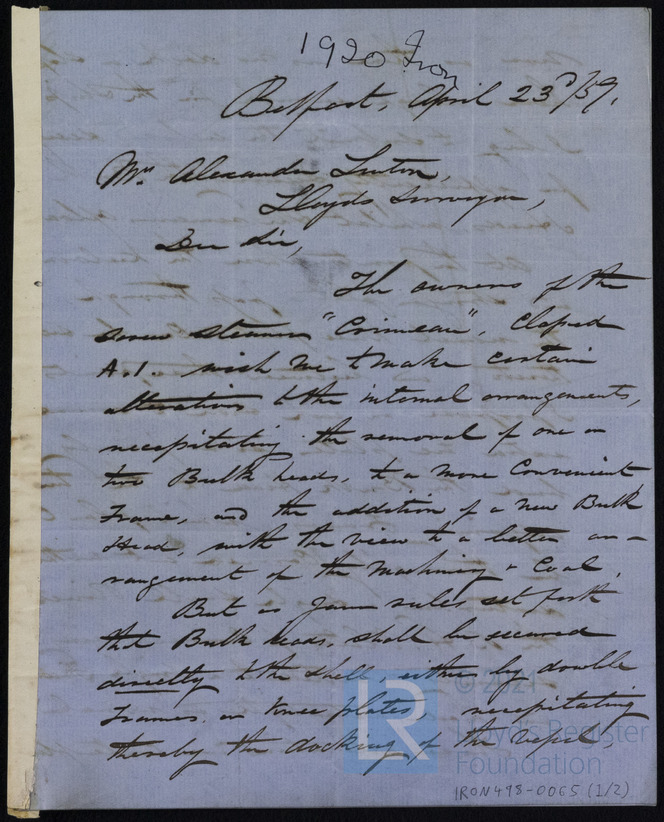 1920 Iron
Belfast, April 23d/59.
Mr. Alexander Luton,
Lloyds Surveyor,
Dear Sir,
The owners of the
screw steamer "Crimean", Classed
A.1. wish me to make certain
alterations to the internal arrangements,
necessitating the removal of one or
two Bulk heads, to a more Convenient
Frame, and the addition of a new Bulk
Head, with the view to a better ar-
rangement of the Machinery & Coal.
But as your rules set forth
that Bulk heads, shall be secured
directly to the shell, either by double
Frames or knee plates, necessitating
thereby the docking of the vessel,
LR
© 2021
Lloyd's Register
Foundation
IRON498-0065 (1/2)